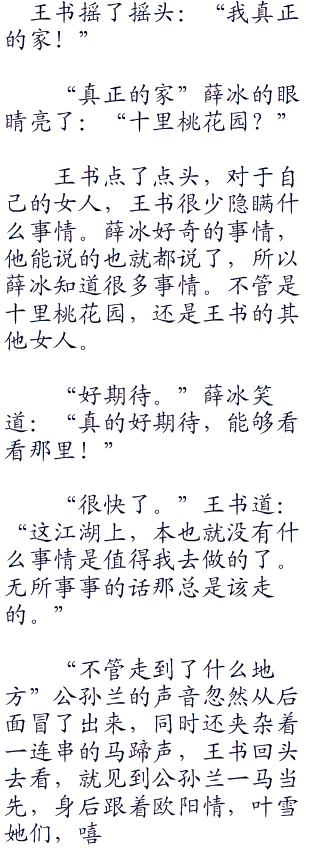 王书摇了摇头：“我真正
的家！”
“真正的家”薛冰的眼
睛亮了：“十里桃花园？”
王书点了点头，对于自
己的女人，王书很少隐瞒什
么事情。薛冰好奇的事情，
他能说的也就都说了，所以
薛冰知道很多事情。不管是
十里桃花园，还是王书的其
他女人。
“好期待。”薛冰笑
道：“真的好期待，能够看
看那里！”
“很快了。”王书道：
“这江湖上，本也就没有什
么事情是值得我去做的了。
无所事事的话那总是该走
的。”
“不管走到了什么地
方”公孙兰的声音忽然从后
面冒了出来，同时还夹杂着
一连串的马蹄声，王书回头
去看，就见到公孙兰一马当
先，身后跟着欧阳情，叶雪
她们，嘻